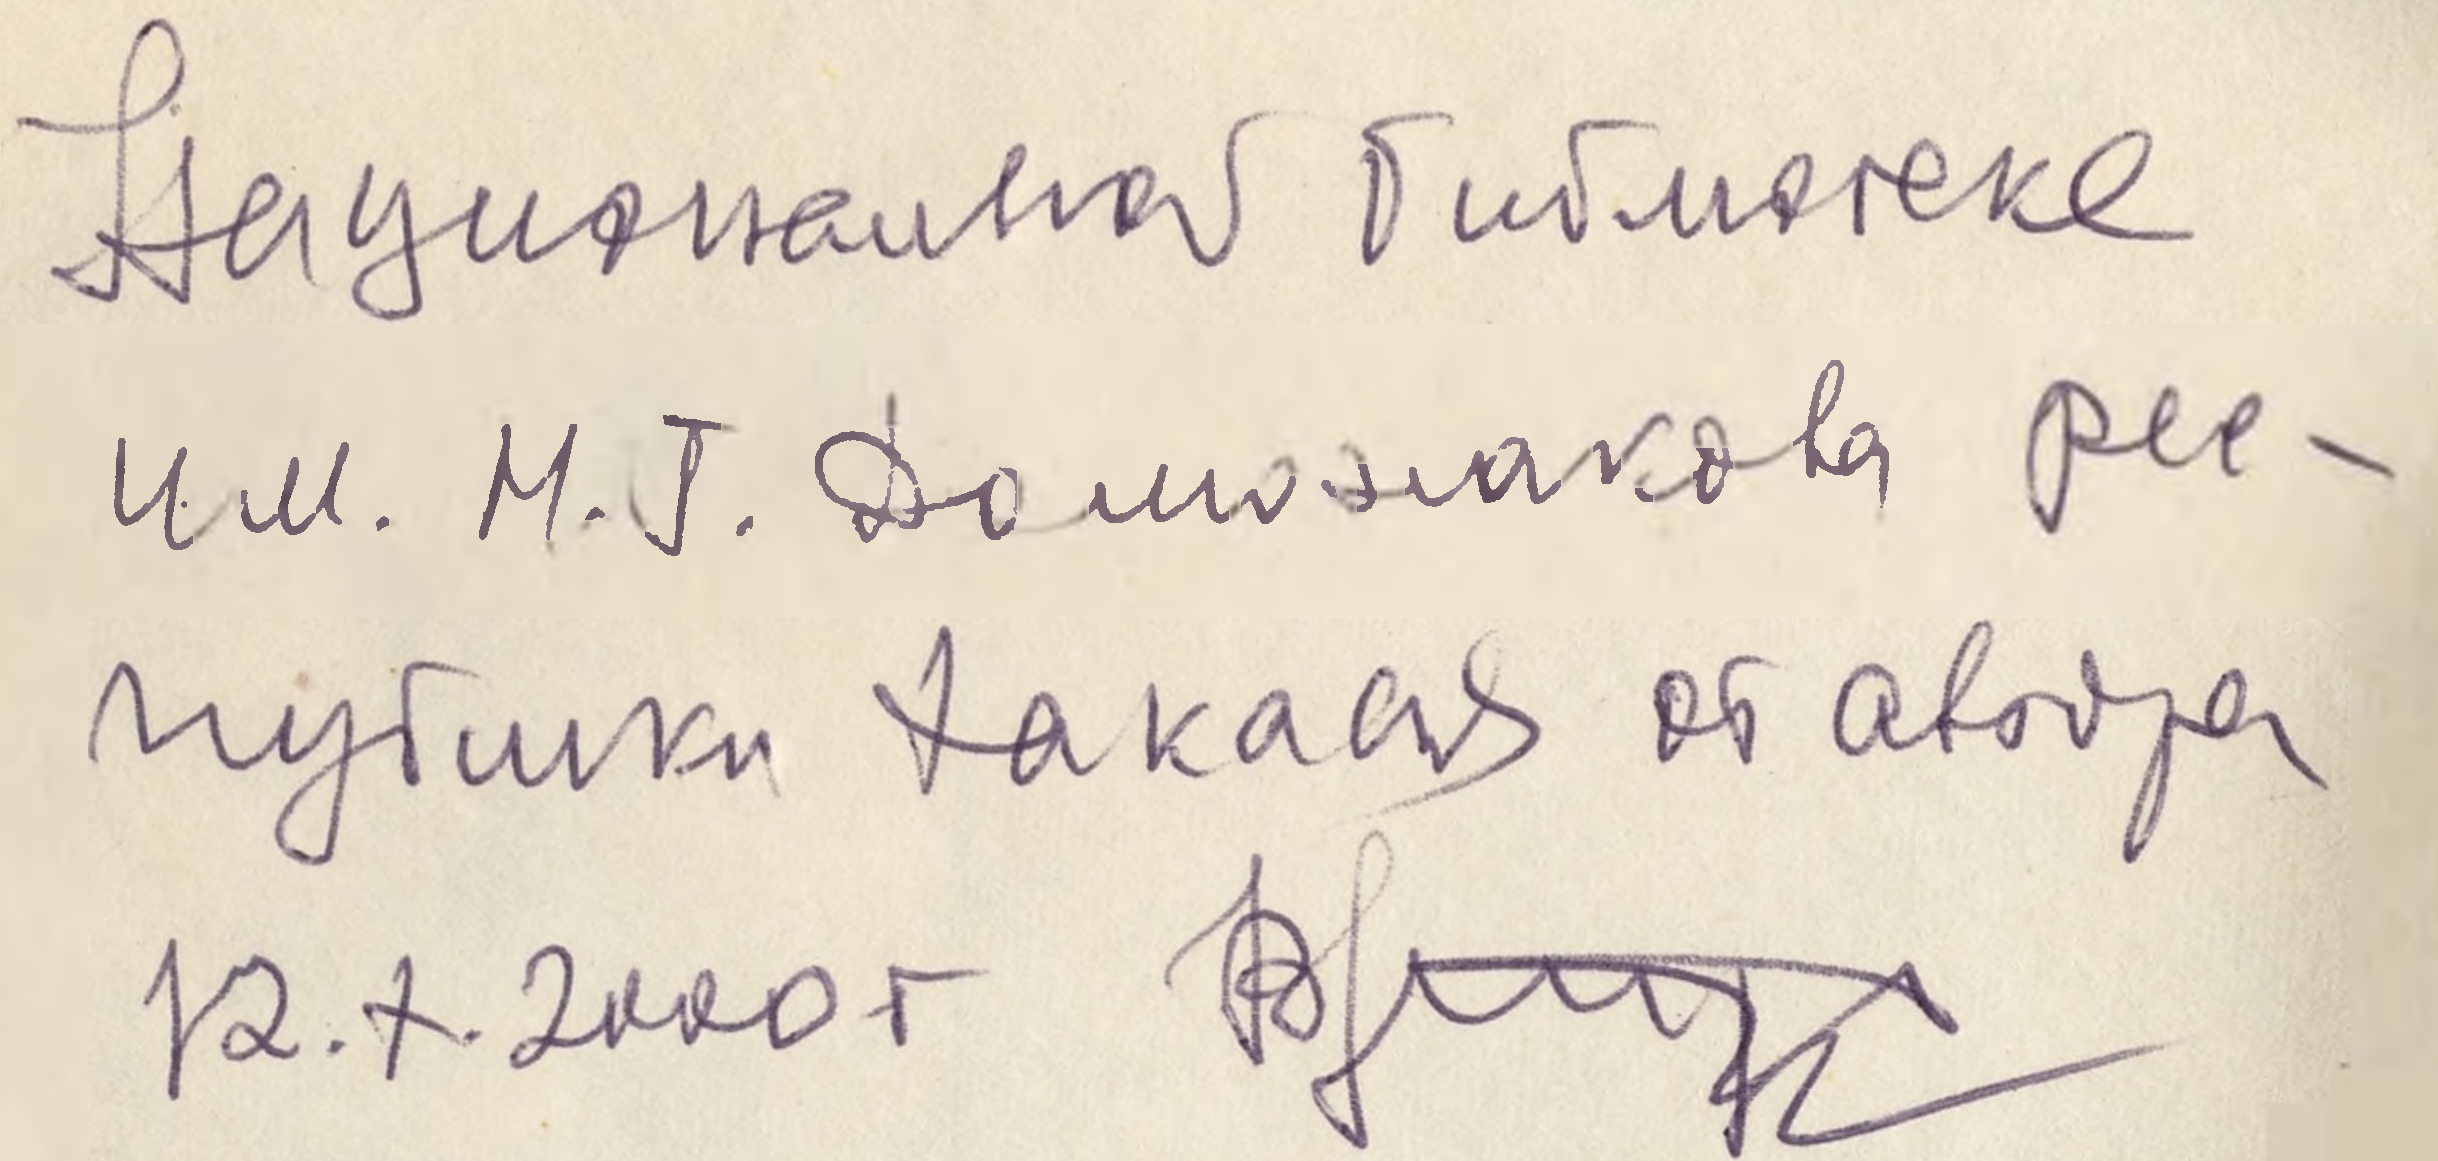 Национальной библиотеке
им. М.Г. Доможакова рес-
публики Хакасия от автора
12.X.2000г